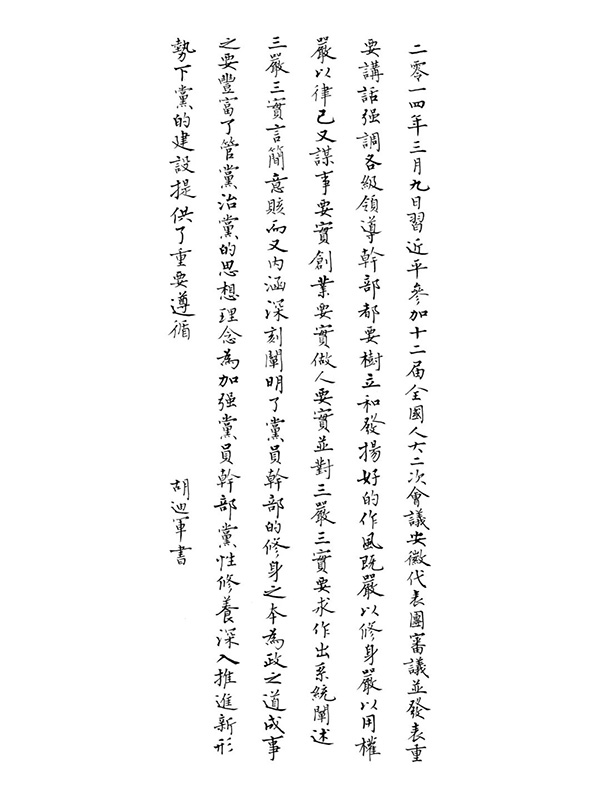 二零一四年三月九日習近平參加十二届全國人大二次會議安徽代表團審議並發表重
要講話强調各級領導幹部都要樹立和發揚好的作風既嚴以修身嚴以用權
嚴以律己又謀事要實創業要實做人要實並對三嚴三實要求作出系統闡述
三嚴三實言簡意賅而又内涵深刻闡明了黨員幹部的修身之本為政之道成事
之要豐富了管黨治黨的思想理念為加强黨員幹部黨性修養深入推進新形
勢下黨的建設提供了重要遵循
胡迪軍書